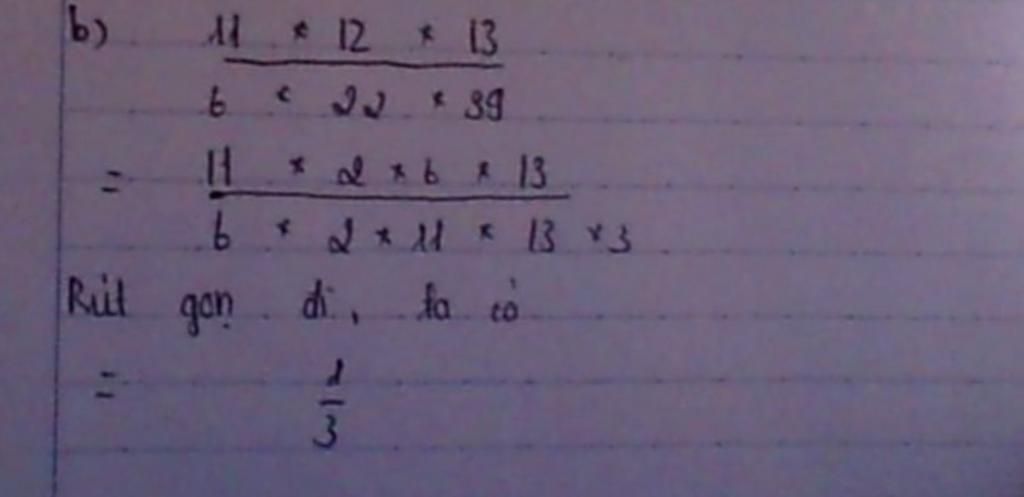 b) 11 * 12 * 13
6 * 22 * 39
= 11 * 2 * 6 * 13
6 * 2 * 11 * 13 * 3
Rút gọn đi, ta có
= 1
3